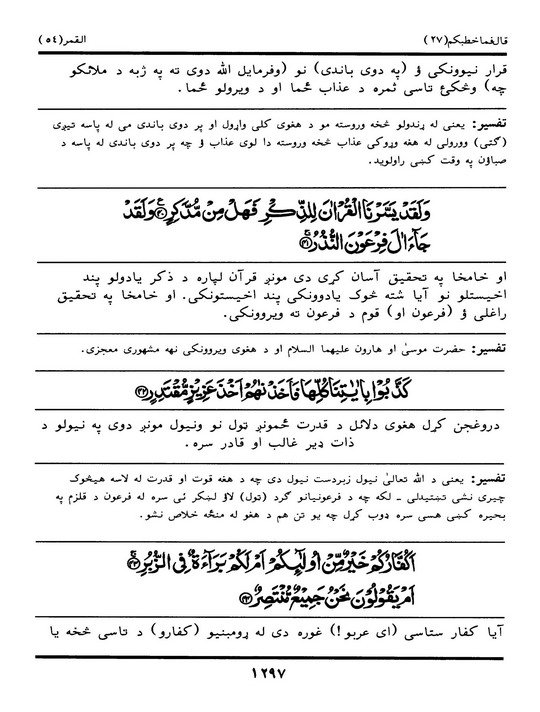 قال فما خطبكم (۲۷) القمر (٥٤)
قرار نیوونکی ؤ (په دوی باندی) نو (وفرمایل الله دوی ته په ژبه د ملائکو
چه) وڅکئ تاسی ثمره د عذاب ځما او د ویرولو ځما.
تفسیر: یعنی له ړندولو څخه وروسته مو د هغوی کلی واړول او پر دوی باندی می له پاسه تیږی
(ګتی) وورولی له هغه وړوکی عذاب څخه وروسته دا لوی عذاب ؤ چه پر دوی باندی له پاسه د
صباؤن په وقت کښی راولوید.
وَلَقَدْ يَسَّرْنَا الْقُرْاٰنَ لِلذِّكْرِ فَهَلْ مِنْ مُّدَّكِرٍ ۝ وَلَقَدْ
جَآءَ اٰلَ فِرْعَوْنَ النُّذُرُ ۝
او خامخا په تحقیق آسان کړی دی مونږ قرآن لپاره د ذکر یادولو پند
اخیستلو نو آیا شته څوک یادوونکی پند اخیستونکی. او خامخا په تحقیق
راغلی ؤ (فرعون او) قوم د فرعون ته ویروونکی.
تفسیر: حضرت موسیٰ او هارون علیهما السلام او د هغوی ویروونکی نهه مشهوری معجزی.
كَذَّبُوْا بِاٰيٰتِنَا كُلِّهَا فَاَخَذْنٰهُمْ اَخْذَ عَزِيْزٍ مُّقْتَدِرٍ ۝
دروغجن کړل هغوی دلائل د قدرت ځمونږ ټول نو ونیول مونږ دوی په نیولو د
ذات ډیر غالب او قادر سره.
تفسیر: یعنی د الله تعالیٰ نیول زبردست نیول دی چه د هغه قوت او قدرت له لاسه هیڅوک
چیری نشی تښتیدلی ـ لکه چه د فرعونیانو ګرد (ټول) لاؤ لښکر ئی سره له فرعون د قلزم په
بحیره کښی هسی سره ډوب کړل چه یو تن هم د هغو له منځه خلاص نشو.
اَكُفَّارُكُمْ خَيْرٌ مِّنْ اُولٰٓئِكُمْ اَمْ لَكُمْ بَرَآءَةٌ فِى الزُّبُرِ ۝
اَمْ يَقُوْلُوْنَ نَحْنُ جَمِيْعٌ مُّنْتَصِرٌ ۝
آیا کفار ستاسی (ای عربو!) غوره دی له ړومبنیو (کفارو) د تاسی څخه یا
۱۲۹۷